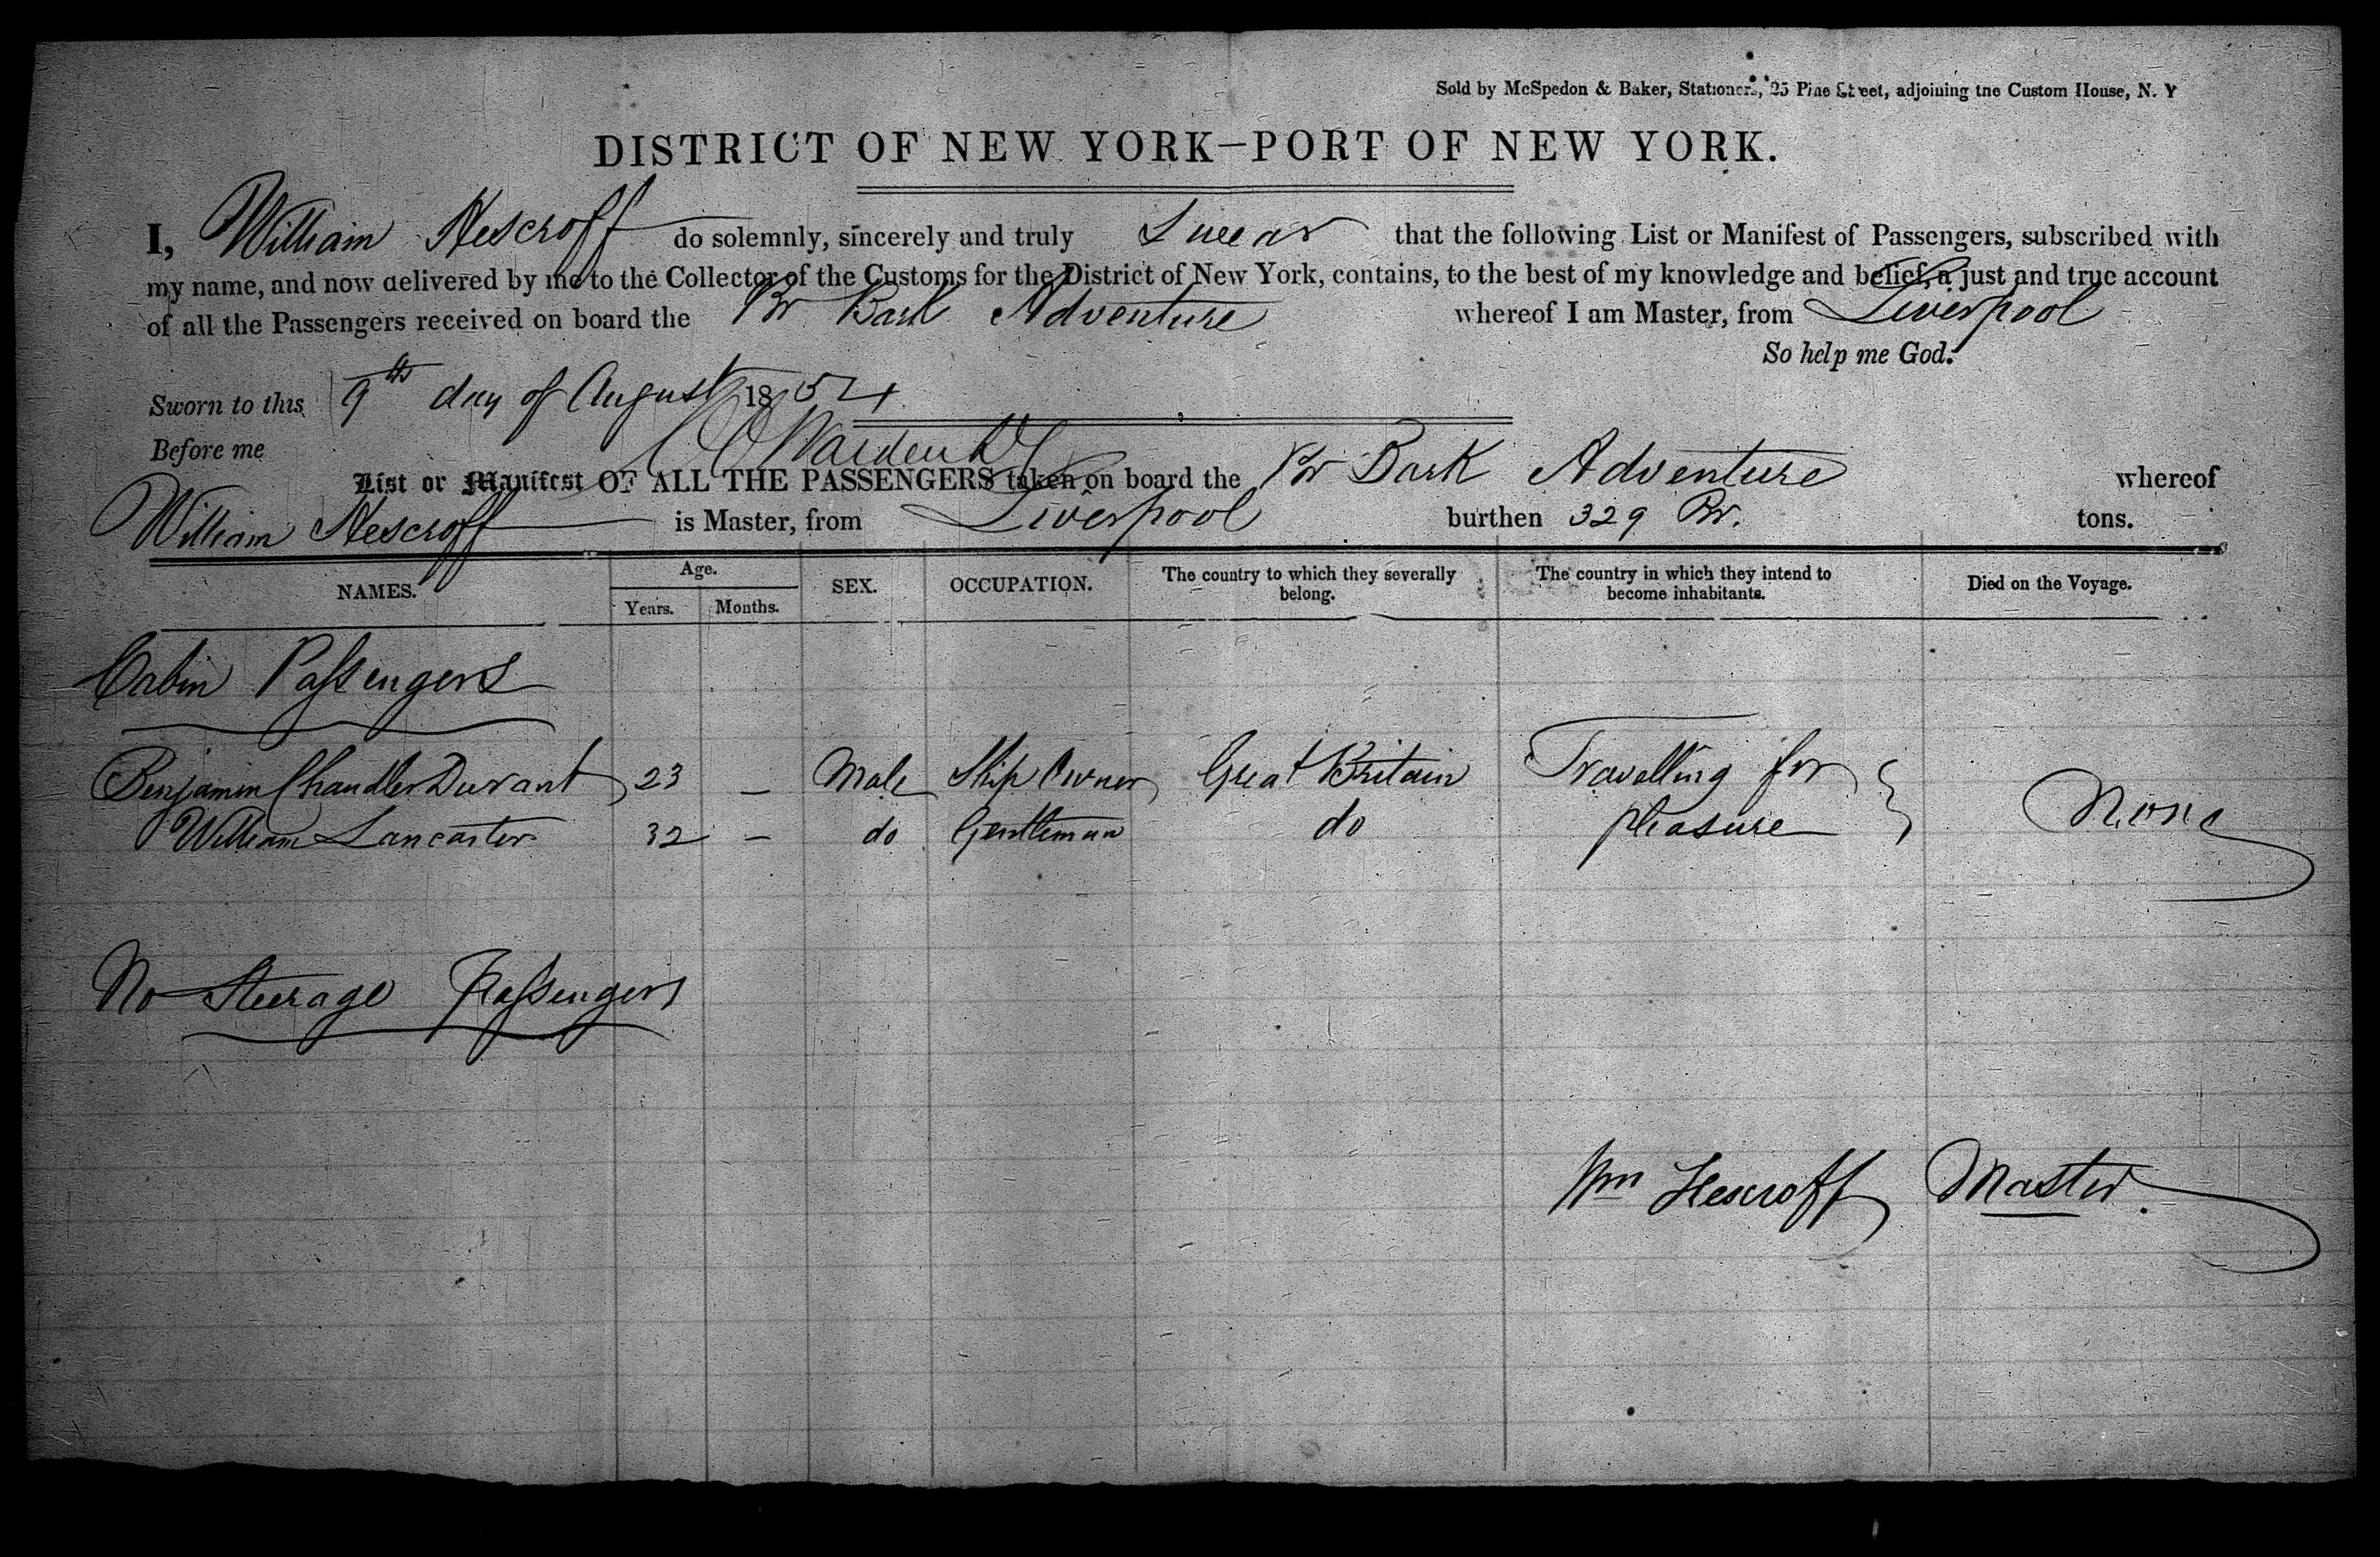 Sold by McSpedon & Baker, Stationers, 25 Pine Street, adjoining the Custom House, N. Y
DISTRICT OF NEW YORK—PORT OF NEW YORK.
I, William Hescroff do solemnly, sincerely and truly Swear that the following List or Manifest of Passengers, subscribed with
my name, and now delivered by me to the Collector of the Customs for the District of New York, contains, to the best of my knowledge and belief, a just and true account
of all the Passengers received on board the Br Bark Adventure whereof I am Master, from Liverpool
So help me God.
Sworn to this 9th day of August 1854
Before me
List or Manifest OF ALL THE PASSENGERS taken on board the Br Bark Adventure whereof
William Hescroff is Master, from Liverpool burthen 329 Br. tons.
NAMES. Age. Years. Months. SEX. OCCUPATION. The country to which they severally belong. The country in which they intend to become inhabitants. Died on the Voyage.
Cabin Passengers
Benjamin Chandler Durant 23 — Male Ship Owner Great Britain Travelling for
William Lancaster 32 — do Gentleman do pleasure None
No Steerage Passengers
Wm Hescroff Master